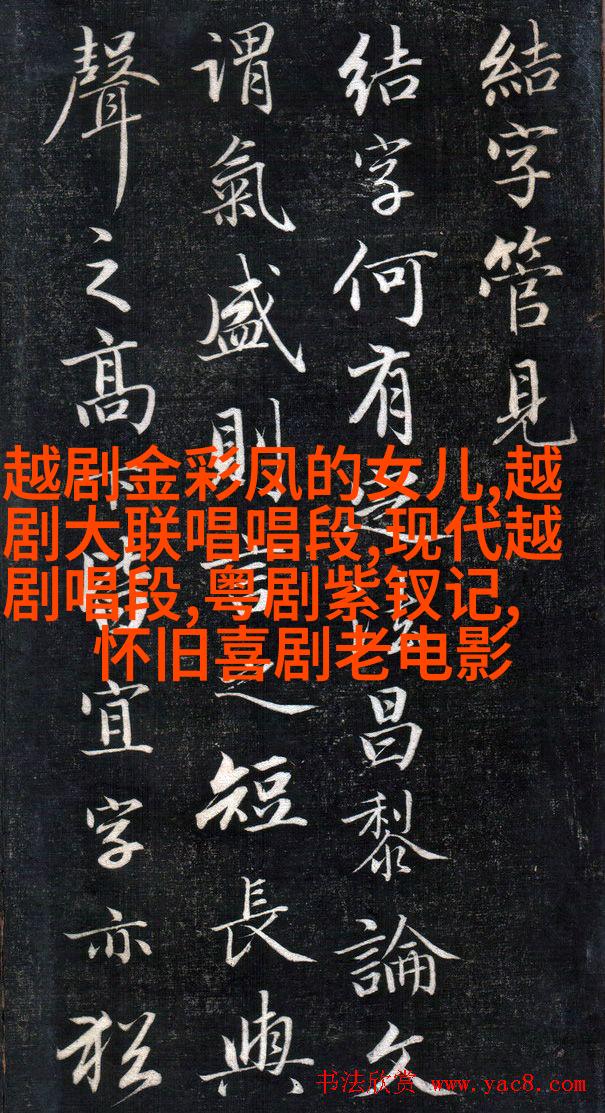 結字管見
结字何有昌黎論文
謂氣盛則言之短長與
聲之高下皆宜字亦猶
越剧金彩凤的女儿,越
剧大联唱唱段,现代越
剧唱段,粤剧紫钗记,
怀旧喜剧老电影
书法欣赏 www.yac8.com